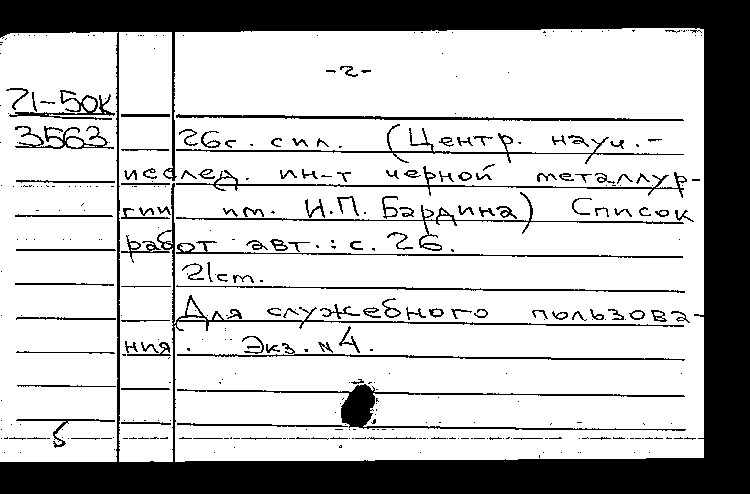 -2-
71-50к
3563 26с. сил. (Центр. науч.-
исслед. ин-т черной металлур-
гии им. И.П. Бардина) Список
работ авт.: с. 26.
21см.
Для служебного пользова-
ния. Экз. N4.
б